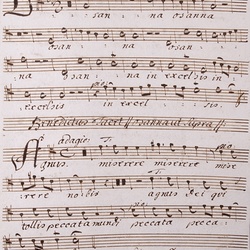 O san na osanna
osan na osan
na san na in excelsis in
excelsis in excel sis.
Benedictus Tacet Osanna ut supra
adagio:
Agnus. miserere miserere mise
rere nobis agnus dei qui
tollis peccata mundi peccata pecca